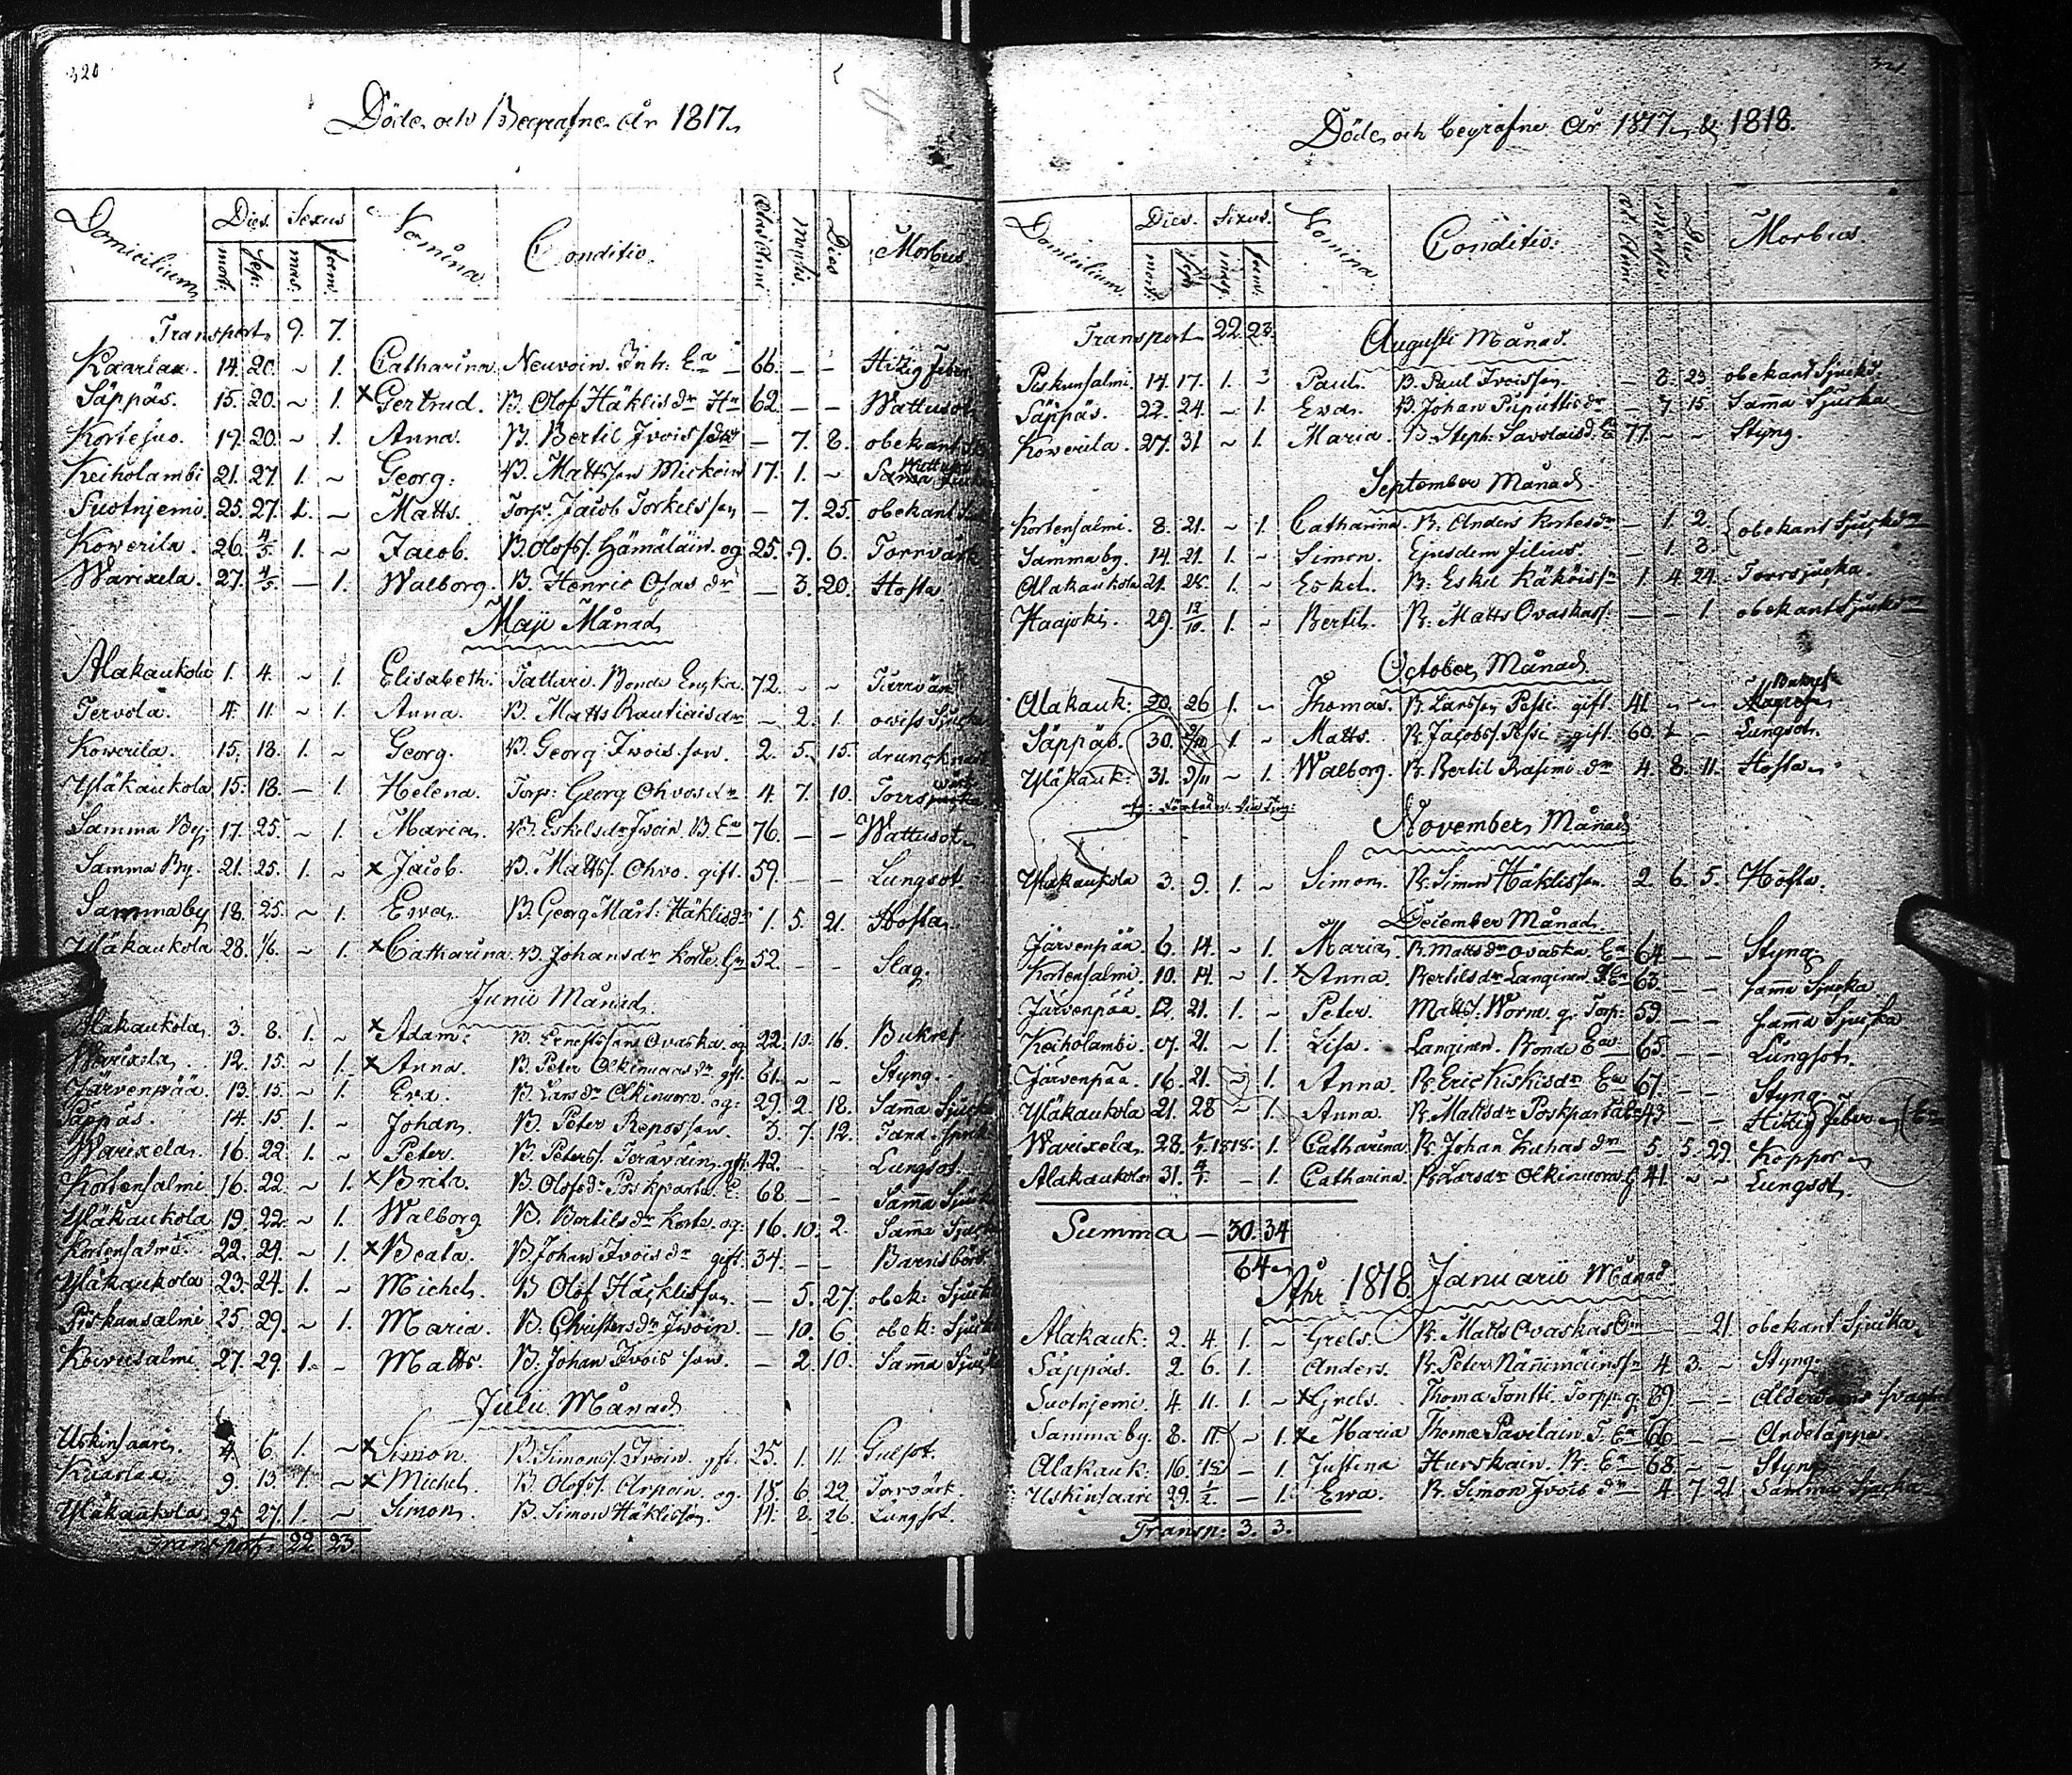 320
Döde och Begrafne År 1817.
Domicilium Dies. Sexus Nomina Conditio. Mensis. Dies Morbus
mort: sep: mas. fœm.
Transport. 9. 7.
Kaarlax. 14. 20. ~ 1. Catharina Neuvoin. Inh: Ea 66. - - Hitzig feber
Säppäs. 15. 20. ~ 1. x Gertrud. B. Olof Häklis dr 62. - - Wattusot
Kortejus. 19. 20. ~ 1. Anna. B. Bertil Ivois dr - 7. 8. obekant
Keiholambi 21. 27. 1. ~ Georg: B. Mattsson Mickein 17. 1. ~
Suotnjemi. 25. 27. 1. ~ Matts. Torp: Jacob Torkelsson - 7. 25. obekant
Kowerila. 26. 4/5 1. ~ Jacob. B. Olofs. Hämäläin. og 25. 9. 6. Torrvärk
Warixela. 27. 4/5. - 1. Walborg. B. Henric Ofas dr - 3. 20. Hosta
Maji Månad
Alakaukola 1. 4. ~ 1. Elisabeth. Tattari. Bonde Enka. 72. ~ ~ Torrvärk
Tervola. 4. 11. ~ 1. Anna. B. Matts Rautiais dr - 2. 1. owiss Sjucka
Kowerila. 15. 18. 1. ~ Georg. B. Georg Ivois son. 2. 5. 15. druncknad
Yläkaukola 15. 18. - 1. Helena. Torp: Georg Ohvos dr 4. 7. 10.
Samma By. 17. 25. ~ 1. Maria. B. Eskels dr Ivoin B. Ea 76. - - Wattusot
Samma By. 21. 25. 1. ~ x Jacob. B. Matts. Ohvo. gift. 59. - - Lungsot
Samma by 18. 25. ~ 1. Ewa. B. Georg Märt: Häklis dr 1. 5. 21. Hosta
Yläkaukola 28. 1/6. ~ 1. x Catharina B. Johans dr Korte. 52. - - Slag.
Junii Månad.
Alakaukola 3. 8. 1. ~ x Adam. B. Ernestsson Ovaska. og 22. 10. 16. Bukref
Warixela 12. 15. ~ 1. x Anna. B. Peter Olkinuoras dr. gft. 61. ~ ~ Styng.
Järvenpää. 13. 15. ~ 1. Eva. B. Lars dr Olkinuora. og: 29. 2. 18. Sama Sjucka
Säppäs. 14. 15. 1. ~ Johan. B. Peter Repos son. 3. 7. 12.
Warixela. 16. 22. 1. ~ Peter. B. Peters. Teräväin. gft: 42. - - Lungsot.
Kortensalmi 16. 22. ~ 1. x Brita. B. Olofs dr Poskparta. E: 68. - - Sama Sjucka
Yläkaukola 19. 22. ~ 1. Walborg B. Bertils dr Korte. og: 16. 10. 2. Sama Sjucka
Kortensalmi. 22. 24. ~ 1. x Beata. B. Johan Ivois dr gift. 34. - - Barnsbörd
Yläkaukola 23. 24. 1. ~ Michel. B Olof Häcklisson. - 5. 27. obek: Sjuck
Piskunsalmi 25. 29. ~ 1. Maria. B. Christers dr Ivoin. - 10. 6. obek: Sjuck
Koivusalmi. 27. 29. 1. ~ Matts. B. Johan Ivois son. - 2. 10. Sama Sjuck
Julii Månad
Uskinsaari. 4. 6. 1. ~ x Simon. B. Simons. Ivoin. gft. 25. 1. 11. Gulsot.
Kaarlax. 9. 13. 1. ~ x Michel. B. Olofs. Arpain. og. 18. 6. 22. Torvärk.
Yläkaukola 25. 27. 1. ~ Simon. B. Simon Häklisson. 11. 2. 26. Lungsot.
Transport. 22 23
321
Döde och begrafne År 1817 & 1818.
Domicilium. Dies. Sexus. Nomina. Conditio: Morbus.
Transport 22. 23. Augusti Månad.
Piskunsalmi. 14. 17. 1. ~ Paul. B. Paul Ivoisson. - 8. 23. obekant Sjuckd.
Säppäs. 22. 24. ~ 1. Eva. B. Johan Puputtis dr - 7. 15. Sama Sjucka
Kowerila. 27. 31 ~ 1. Maria. B. Steph: Savolais d. Ea 77. - - Styng.
September Månad
Kortensalmi. 8. 21. ~ 1. Catharina. B. Anders Kortes dr - 1. 2. obekant Sjuckdm
Samma by. 14. 21. 1. ~ Simon. Ejusdem filius. - 1. 8.
Alakaukola 21. 28. 1. ~ Eskel. B. Eskel Käköis sn 1. 4. 24. Torrsjucka.
Haapski. 29. 12/10. 1. ~ Bertil. B. Matts Ovaskas s. - - 1. obekant Sjuckdm
October Månad
Alakauk: 20. 26 1. ~ Thomas. B. Larsson Pessi gift. 41. ~ ~ Bukref
Säppäs. 30. 1. ~ Matts. B. Jacobs. Pessi gift. 60. 1. - Lungsot.
Yläkauk: 31. 9/11 ~ 1. Walborg. B. Bertil Rasimi dr 4. 8. 11. Hosta
November Månad
Yläkaukola 3. 9. 1. ~ Simon. B. Simon Häklisson. 2. 6. 5. Hosta.
December Månad.
Järvenpää 6. 14. ~ 1. Maria. B. Matts dr Ovaska. Ea 64. - - Styng
Kortensalmi. 10. 14. ~ 1. x Anna. Bertils dr Langinen. 63. - - sama Sjucka
Järvenpää. 12. 21. 1. ~ Peter. Matts. Worna g. Torp: 59 - - sama Sjucka
Keiholambi. 17. 21. ~ 1. Lisa. Langinen. Bonde Ea 65. - - Lungsot.
Järvenpää. 16. 21. ~ 1. Anna. B. Eric Kiskis dr Ea 67. - - Styng
Yläkaukola 21. 28 ~ 1. Anna. B. Matts dr Poskparta 43 - - Hitzig feber
Warixela. 28. 1818. 1. Catharina B. Johan Kuhas dr 5. 5. 29. Koppor
Alakaukola 31. 4/1. - 1. Catharina B. Lars dr Olkinuora G 41. ~ ~ Lungsot.
Summa - 30. 34
64
Åhr 1818 Januarii Månad.
Alakauk: 2. 4. 1. ~ Grels. B. Matts Ovaskas - - 21. obekant Sjucka
Säppäs. 2. 6. 1. Anders. B. Peter Nänimäins sn 4. 3. ~ Styng.
Suotnjemi. 4. 11. 1. ~ x Grels. Thomas Tontti. Torpp. g. 89. - - Ålderdoms svaghet
Samma by. 8. 11. ~ 1. x Maria Thomas Pavilain. T. Ea 66 - - Andetäppa
Alakauk: 16. 18 - 1. Justina Hurskain. B: Ea 68. - - Styng
Uskinsaari 29. 1/2. - 1. Ewa. B. Simon Ivois dr 4 7. 21. Samma Sjucka
Transp: 3. 3.